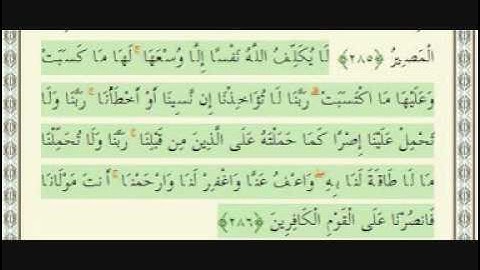 الْمَصِيرُ ﴿٢٨٥﴾ لَا يُكَلِّفُ اللَّهُ نَفْسًا إِلَّا وُسْعَهَا ۚ لَهَا مَا كَسَبَتْ
وَعَلَيْهَا مَا اكْتَسَبَتْ ۗ رَبَّنَا لَا تُؤَاخِذْنَا إِن نَّسِينَا أَوْ أَخْطَأْنَا ۚ رَبَّنَا وَلَا
تَحْمِلْ عَلَيْنَا إِصْرًا كَمَا حَمَلْتَهُ عَلَى الَّذِينَ مِن قَبْلِنَا ۚ رَبَّنَا وَلَا تُحَمِّلْنَا
مَا لَا طَاقَةَ لَنَا بِهِ ۖ وَاعْفُ عَنَّا وَاغْفِرْ لَنَا وَارْحَمْنَا ۚ أَنتَ مَوْلَانَا
فَانصُرْنَا عَلَى الْقَوْمِ الْكَافِرِينَ ﴿٢٨٦﴾